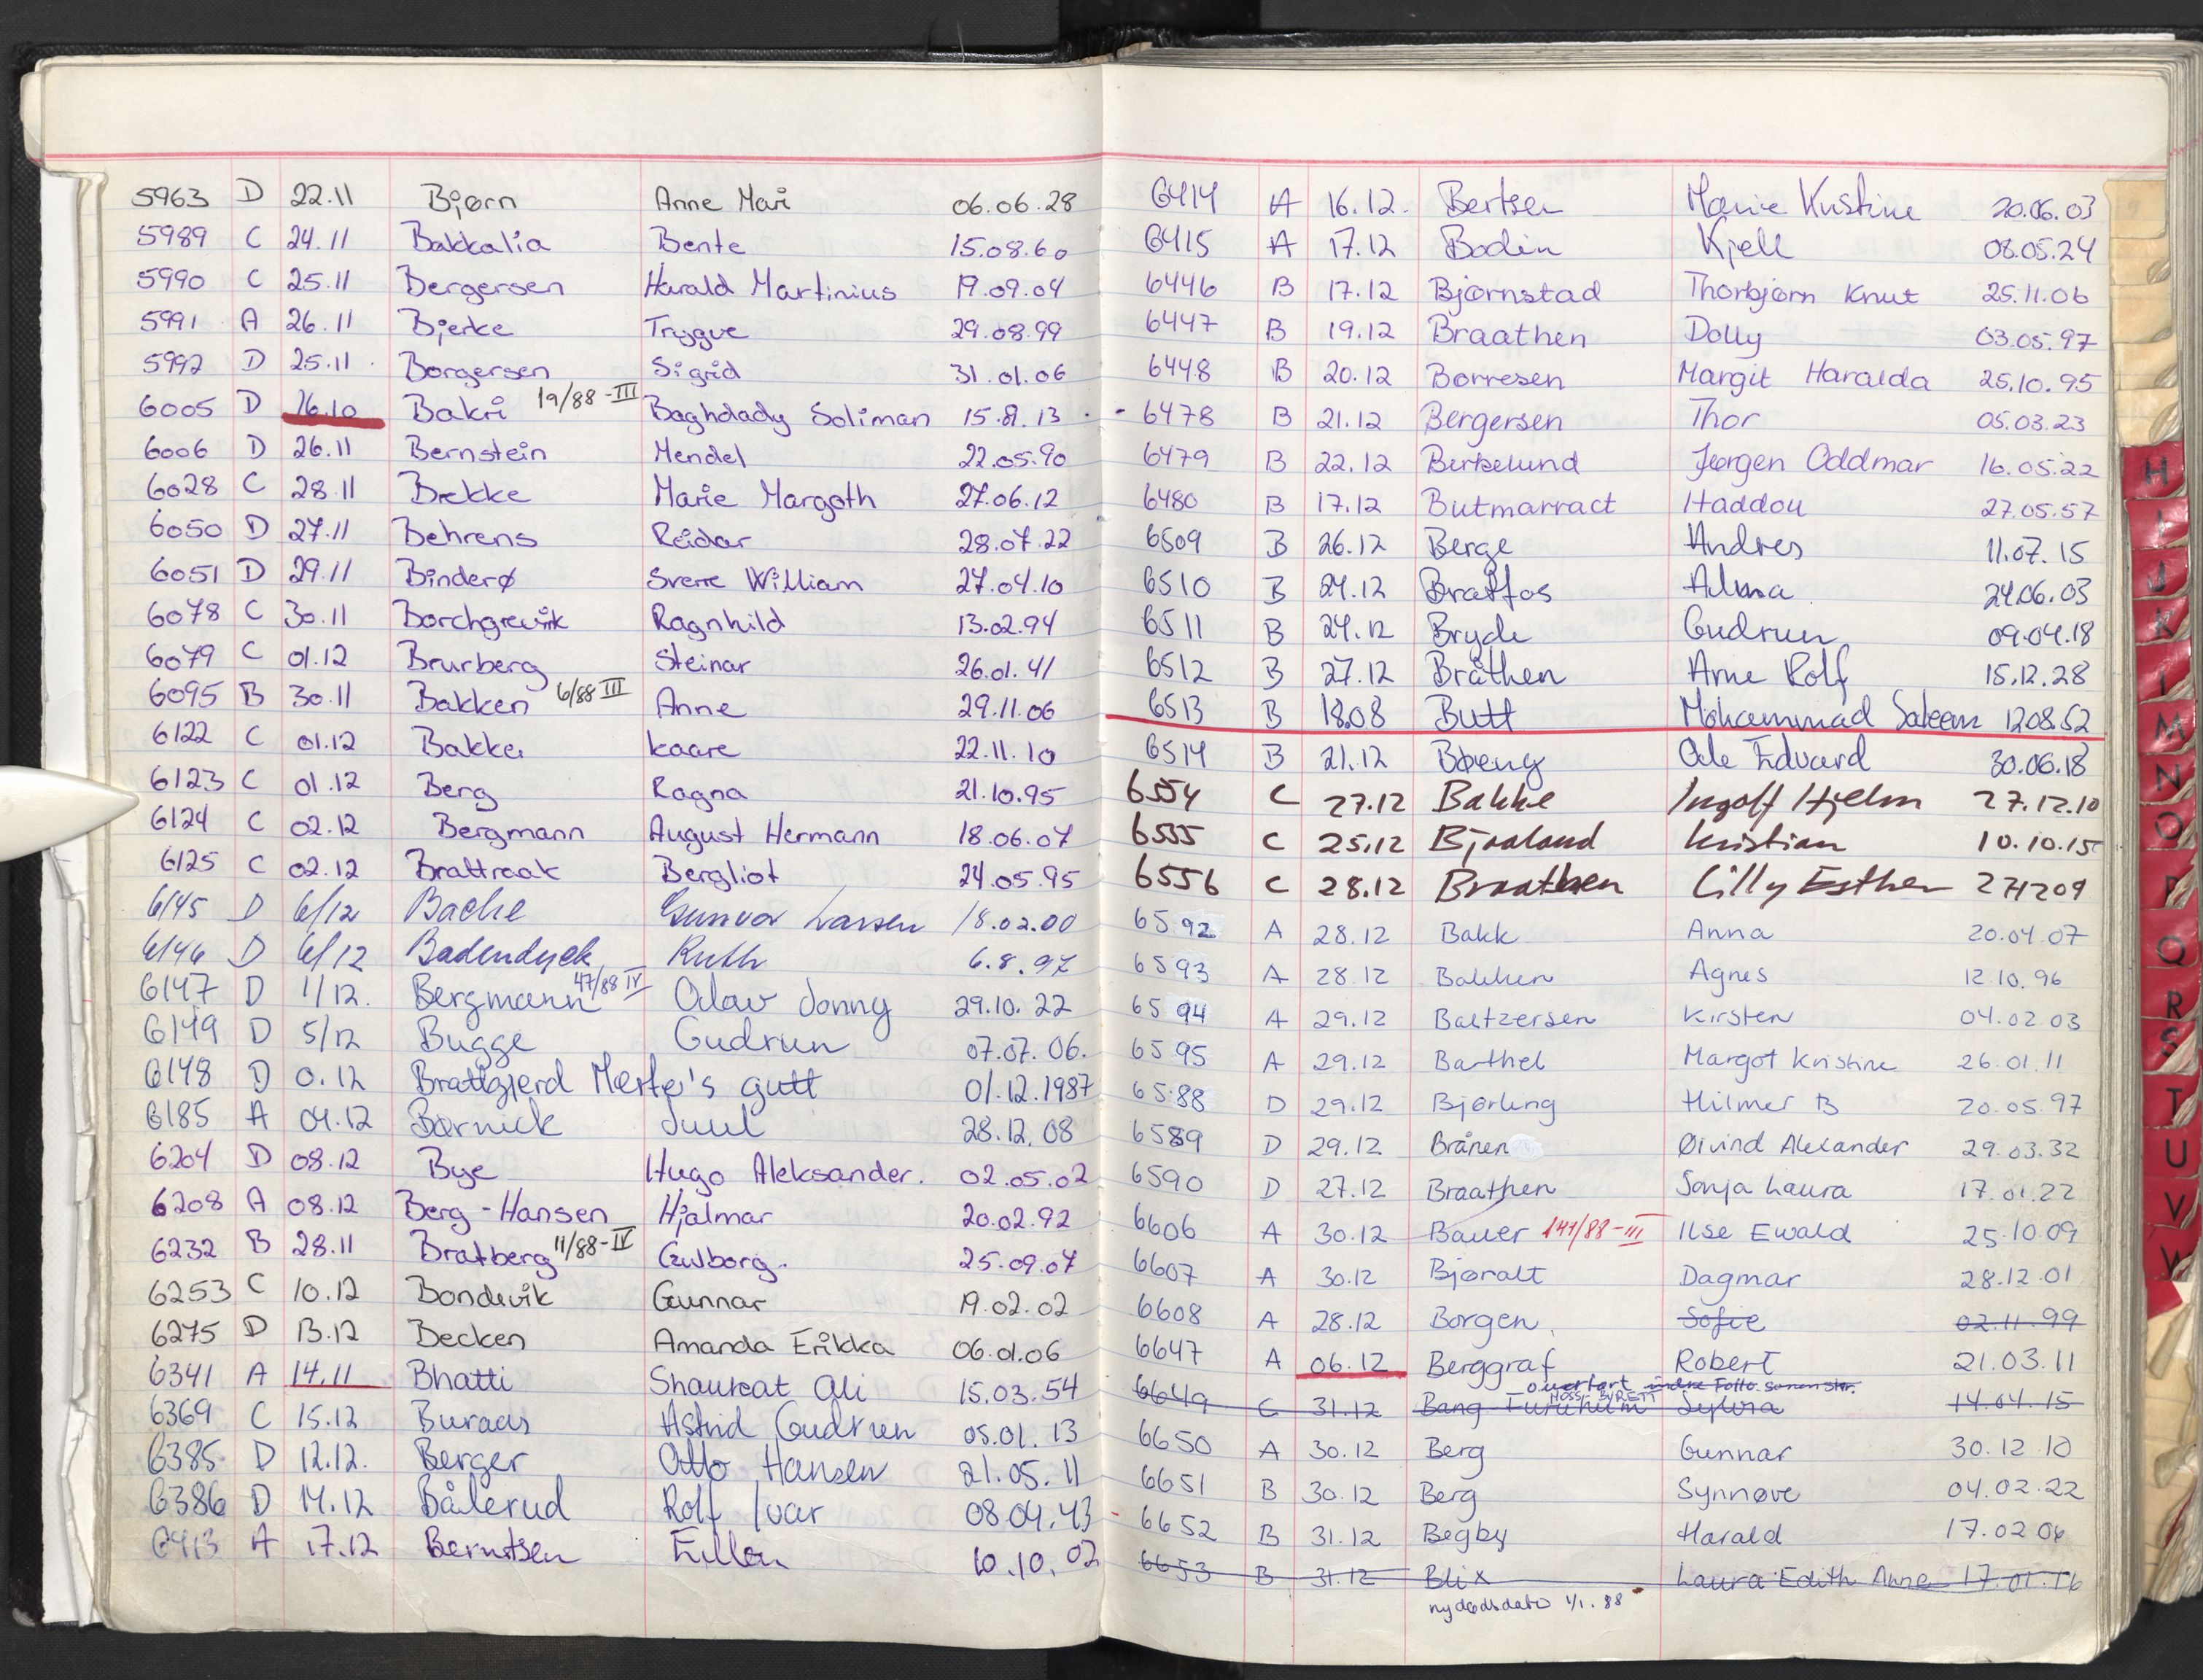 5963 D 22.11 Bjørn Anne Mari 06.06.28
5989 C 24.11 Bakkalia Bente 15.08.60
5990 C 25.11 Bergersen Harald Martinius 19.09.04
5991 A 26.11 Bjerke Trygve 29.08.99
5992 D 25.11 Borgersen Sigrid 31.01.06
6005 D 16.10 Bakri 19/88-III Baghdady Soliman 15.8.13
6006 D 26.11 Bernstein Mendel 22.05.90
6028 C 28.11 Brekke Marie Margoth 27.06.12
6050 D 27.11 Behrens Reidar 28.07.22
6051 D 29.11 Binderø Sverre William 27.04.10
6078 C 30.11 Borchgrevink Ragnhild 13.02.94
6079 C 01.12 Brurberg Steinar 26.01.41
6095 B 30.11 Bakken 6/88 III Anne 29.11.06
6122 C 01.12 Bakke Kaare 22.11.10
6123 C 01.12 Berg Ragna 21.10.95
6124 C 02.12 Bergmann August Hermann 18.06.07
6125 C 02.12 Brattraak Bergliot 24.05.95
6145 D 6/12 Bache Gunvor Larsen 18.02.00
6146 D 6/12 Badendyck Ruth 6.8.97
6147 D 1/12. Bergmann 47/88 IV Olav Jonny 29.10.22
6149 D 5/12 Bugge Gudrun 07.07.06.
6148 D 0.12 Brattgjerd Merte's gutt 01.12.1987
6185 A 04.12 Børnick Juul 28.12.08
6204 D 08.12 Bye Hugo Aleksander. 02.05.02
6208 A 08.12 Berg-Hansen Hjalmar 20.02.92
6232 B 28.11 Bratberg 11/88-IV Gulborg. 25.09.07
6253 C 10.12 Bondevik Gunnar 19.02.02
6275 D 13.12 Becken Amanda Erikka 06.01.06
6341 A 14.11 Bhatti Shaukat Ali 15.03.54
6369 C 15.12 Buraas Astrid Gudrun 05.01.13
6385 D 12.12. Berger Otto Hansen 21.05.11
6386 D 14.12 Bålerud Rolf Ivar 08.04.43
6413 A 17.12 Berntsen Ellen 10.10.02
6414 A 16.12. Bertsen Marie Kristine 20.06.03
6415 A 17.12 Bodin Kjell 08.05.24
6446 B 17.12 Bjørnstad Thorbjørn Knut 25.11.06
6447 B 19.12 Braathen Dolly 03.05.97
6448 B 20.12 Børresen Margit Haralda 25.10.95
6478 B 21.12 Bergersen Thor 05.03.23
6479 B 22.12 Birkelund Jørgen Oddmar 16.05.22
6480 B 17.12 Butmarract Haddou 27.05.57
6509 B 26.12 Berge Andres 11.07.15
6510 B 24.12 Bratfos Alma 24.06.03
6511 B 24.12 Bryde Gudrun 09.04.18
6512 B 27.12 Bråthen Arne Rolf 15.12.28
6513 B 18.08 Butt Mohammad Saleem 12.08.52
6514 B 21.12 Bøeng Ole Edvard 30.06.18
6554 C 27.12 Bakke Ingolf Hjelm 27.12.10
6555 C 25.12 Bjaaland Kristian 10.10.15
6556 C 28.12 Braathen Lilly Esther 271209
6592 A 28.12 Bakk Anna 20.04.07
6593 A 28.12 Bakken Agnes 12.10.96
6594 A 29.12 Baltzersen Kirsten 04.02.03
6595 A 29.12 Barthel Margot Kristine 26.01.11
6588 D 29.12 Bjørling Hilmer B 20.05.97
6589 D 29.12 Brånen Øivind Alexander 29.03.32
6590 D 27.12 Braathen Sonja Laura 17.01.22
6606 A 30.12 Bauer 141/88-III Ilse Ewald 25.10.09
6607 A 30.12 Bjøralt Dagmar 28.12.01
6608 A 28.12 Borgen. Sofie 02.11.99
6647 A 06.12 Berggraf Robert 21.03.11
overført indre Follo
MOSS BYRETT
6649 C 31.12 Bang Furuholm Sylvia 14.04.15
6650 A 30.12 Berg Gunnar 30.12.10
6651 B 30.12 Berg Synnøve 04.02.22
6652 B 31.12 Begby Harald 17.02.06
6653 B 31.12 Blix Laura Edith Anne 17.01.16
ny dødsdato 1/1.88
H
I
J
K
L
M
N
O
P
Q
R
S
T
U
V
W